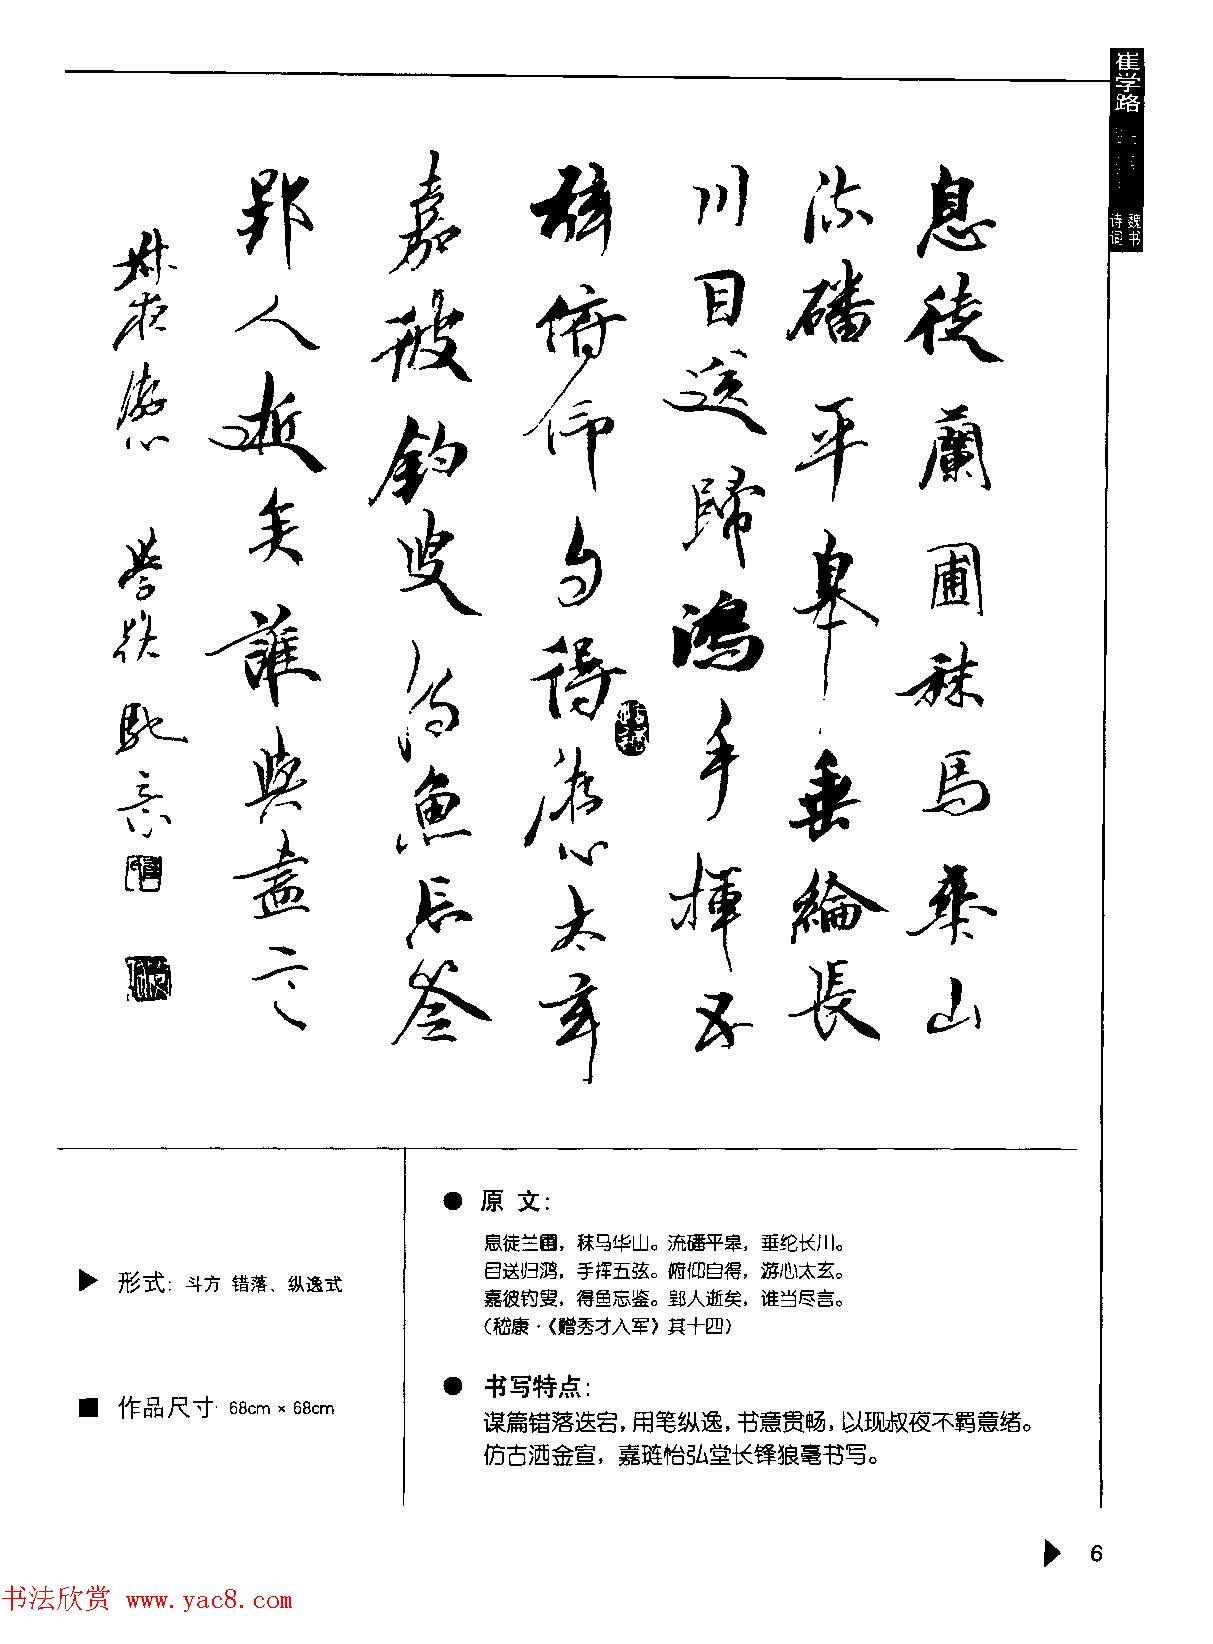 崔学路
魏书
诗词
息徒蘭圃秣馬華山
流磻平皋垂綸長
川目送歸鴻手揮五
絃俯仰自得游心太玄
嘉彼釣叟得魚忘筌
郢人逝矣誰與盡言
叔夜 學路馳意
▶ 形式: 斗方 错落、纵逸式
■ 作品尺寸: 68cm × 68cm
● 原 文:
息徒兰圃，秣马华山。流磻平皋，垂纶长川。
目送归鸿，手挥五弦。俯仰自得，游心太玄。
嘉彼钓叟，得鱼忘鉴。郢人逝矣，谁当尽言。
(嵇康·《赠秀才入军》其十四)
● 书写特点:
谋篇错落迭宕，用笔纵逸，书意贯畅，以现叔夜不羁意绪。
仿古洒金宣，嘉琏怡弘堂长锋狼毫书写。
▶ 6
书法欣赏 www.yac8.com